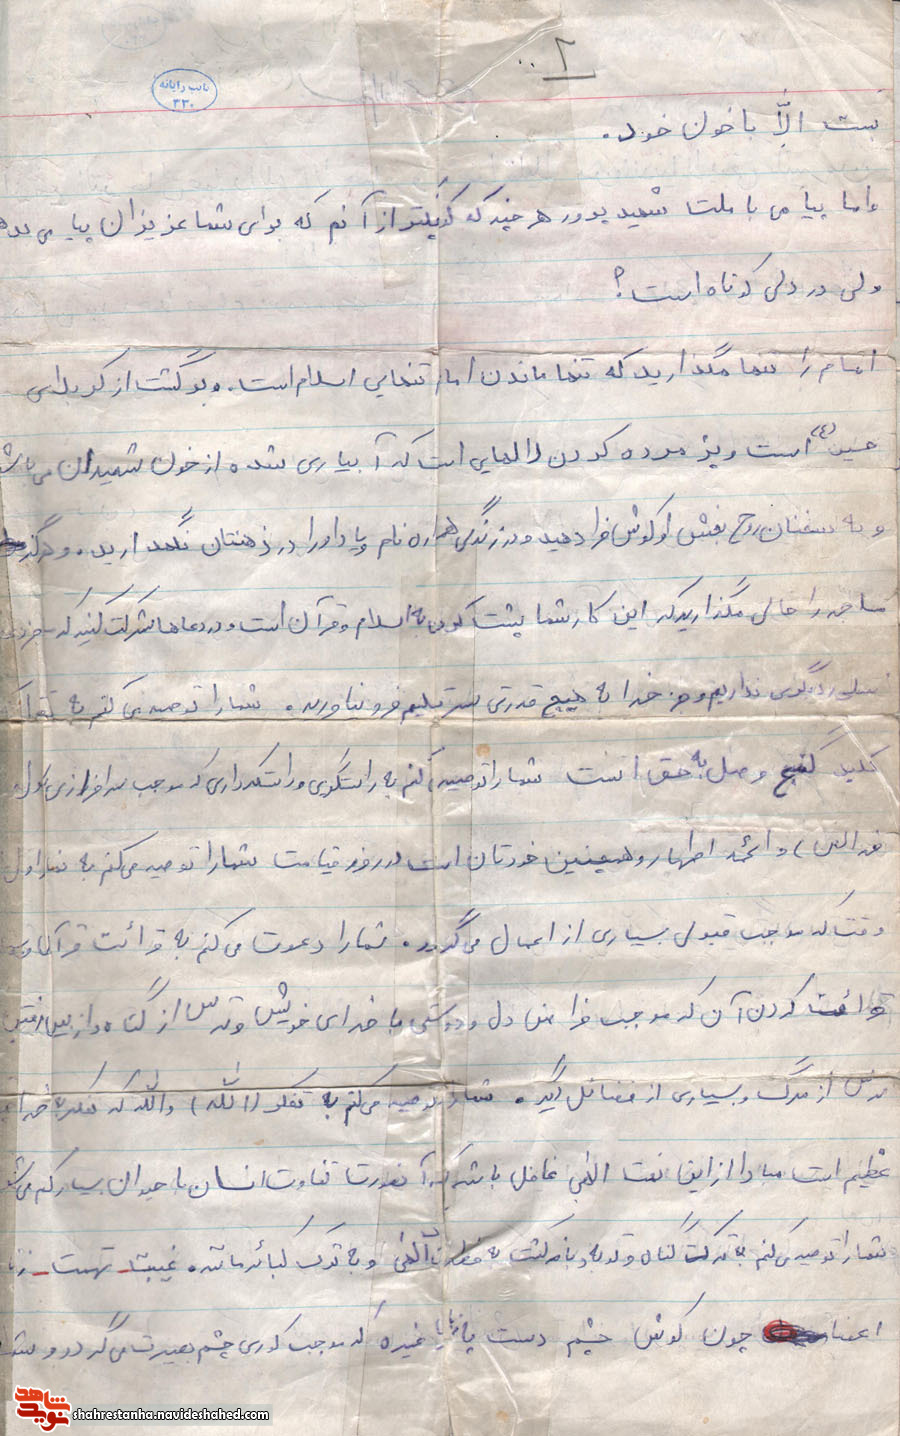 ۲۰۰
نایب رایانه
۳۳۰
نیست الّا با خون خود.
واما پیا می با ملت شهید پرور هر چند که کوچکتر از آنم که برای شما عزیزان پیا می بدهم
ولی در دلی کوتاه است؟
امام را تنها مگذارید که تنها ماندن امام تنهایی اسلام است. و برگشت از کربلای
حسین (ع) است و پژمرده کردن لالهایی است که آبیاری شده از خون شهیدان می باشد
و به سخنان روح بخش او گوش فرا دهید و در زندگی همواره نام و یاد او را در ذهنتان نگهدارید. و هرگز
مساجد را خالی مگذارید که این کار شما پشت کردن به اسلام و قرآن است و در دعاها شرکت کنید که
نداریم و جز خدا به هیچ قدرتی سر تسلیم فرو نیاورید. شما را توصیه می کنم به تقوا که
کلید گنج وصل به حق است شما را توصیه میکنم به راستگوی و راستکرداری که موجب سرافرازی رسول
و ائمه اطهار و همچنین خودتان است در روز قیامت شما را توصیه می کنم به نماز اول
وقت که موجب قبولی بسیاری از اعمال می گردد. شما را دعوت می کنم به قرائت قرآن
قرائت کردن آن که موجب دل و دوستی با خدای خویش و ترس از گناه و از بین رفتن
ترس از مرگ و بسیاری از فضائل دیگر. شما را توصیه می کنم به تفکر (الله) والله که تفکر به خدای
عظیم است مبادا از این نعمت الهی غافل باشید که آنصورت تفاوت انسان با حیوان بسیار کم می شود
شما را توصیه می کنم به ترک گناه و توبه و بازگشت به فطرت الهی و به ترک کبائر مانند. غیبت - تهمت - زنا
اعضا چون گوش چشم دست پا زبان غیره که موجب کوری چشم بصیرت می گردد و
شاهد
نوید
shahrestanha.navideshahed.com